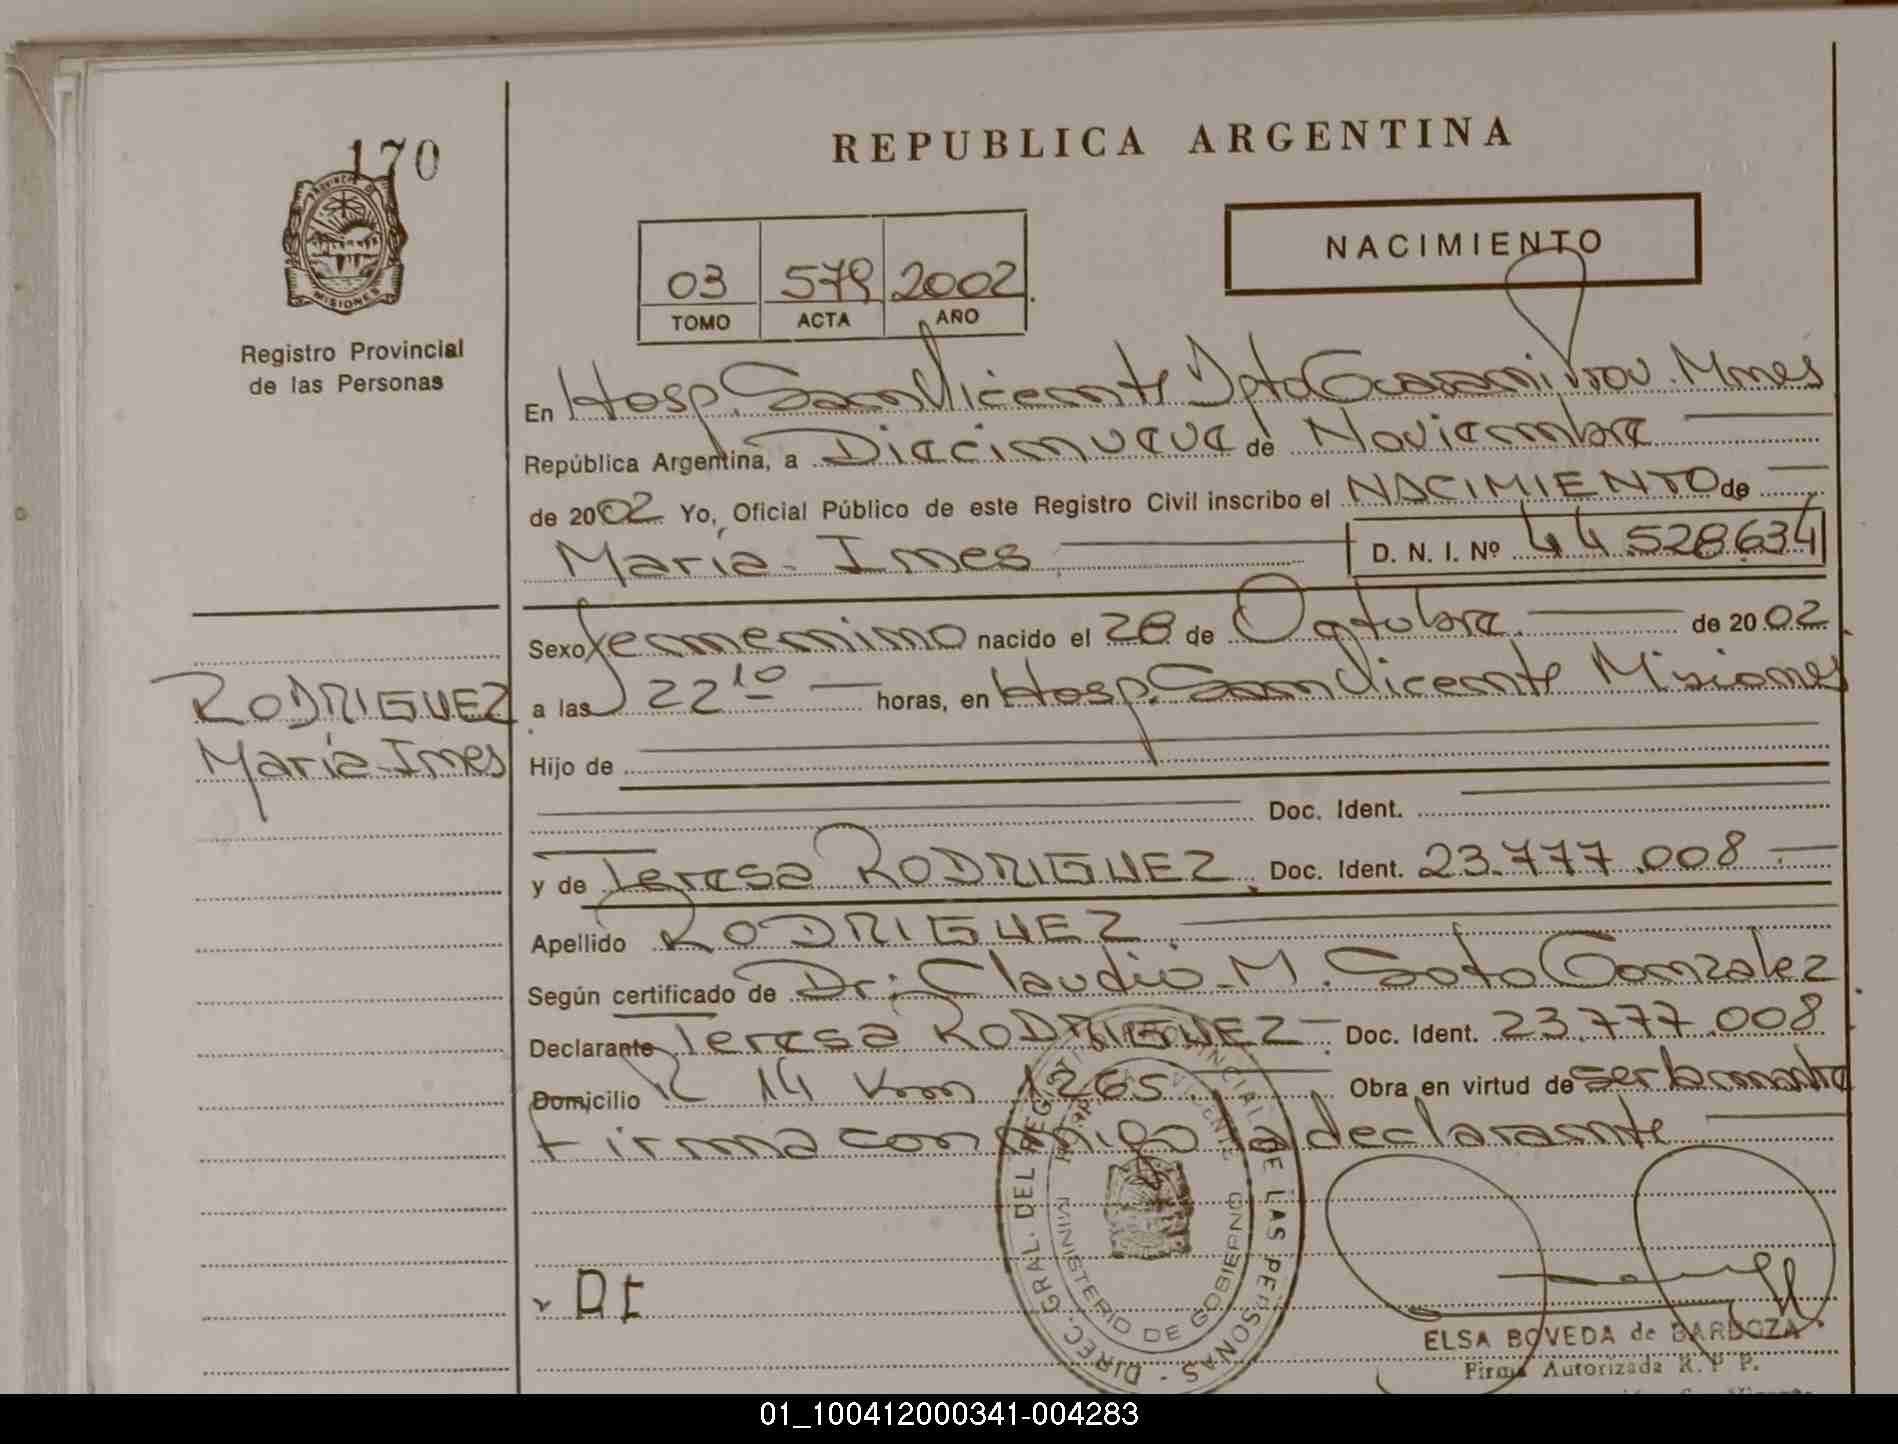 170
PROVINCIA DE
MISIONES
Registro Provincial
de las Personas
REPUBLICA ARGENTINA
NACIMIENTO
03 579 2002
TOMO ACTA AÑO
En Hosp. San Vicente Dpto Guarani Prov. Mnes
República Argentina, a Diecinueve de Noviembre
de 2002 Yo, Oficial Público de este Registro Civil inscribo el NACIMIENTO de
María Ines D. N. I. Nº 44 528.634
Sexo femenino nacido el 28 de Octubre de 2002
a las 22 10 horas, en Hosp. San Vicente Misiones
RODRIGUEZ
María Ines
Hijo de
Doc. Ident.
y de Teresa RODRIGUEZ Doc. Ident. 23.777.008
Apellido RODRIGUEZ
Según certificado de Dr: Claudio M. Soto Gonzalez
Declarante Teresa RODRIGUEZ Doc. Ident. 23.777.008
Domicilio R 14 Km 1265 Obra en virtud de ser la madre
Firma conmigo la declarante
DIREC. GRAL. DEL REGISTRO PROVINCIAL DE LAS PERSONAS
MINISTERIO DE GOBIERNO
ELSA BOVEDA de BARBOZA
Firma Autorizada R. P P.
01_100412000341-004283